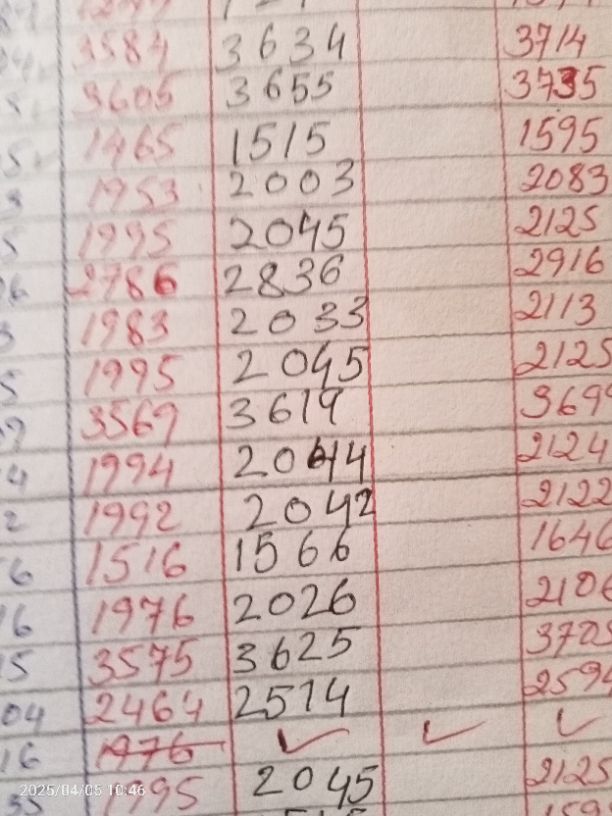 3584 3634 3714
3605 3655 3735
1465 1515 1595
1953 2003 2083
1995 2045 2125
2786 2836 2916
1983 2033 2113
1995 2045 2125
3569 3619 369
1994 2044 2124
1992 2042 2122
6 1516 1566 1646
16 1976 2026 210
15 3575 3625 3705
04 2464 2514 2594
16 1976 ✓ ✓ ✓
35 1995 2045 2125
2025/04/05 10:46